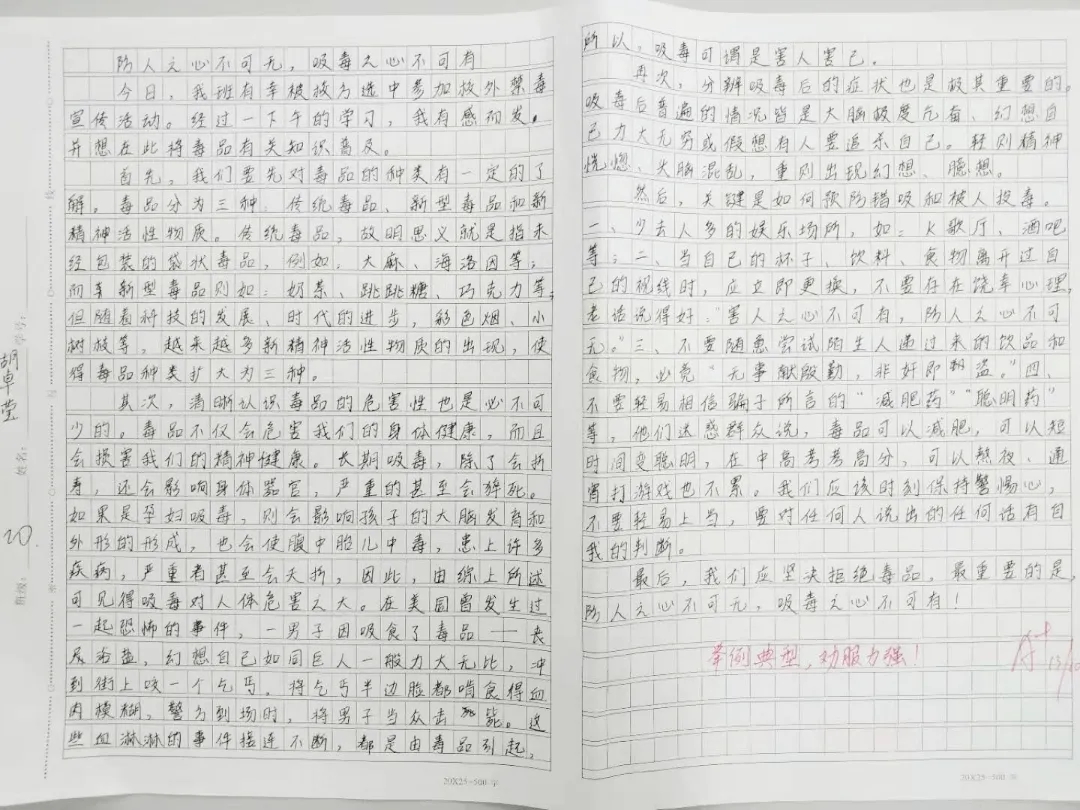 防人之心不可无，吸毒之心不可有
今日，我班有幸被校方选中参加校外禁毒
宣传活动。经过一下午的学习，我有感而发。
并想在此将毒品有关知识普及。
首先，我们要先对毒品的种类有一定的了
解。毒品分为三种：传统毒品、新型毒品和新
精神活性物质。传统毒品，故明思义就是指未
经包装的袋状毒品，例如：大麻、海洛因等；
而新型毒品则如：奶茶、跳跳糖、巧克力等；
但随着科技的发展、时代的进步，彩色烟、小
树枝等，越来越多新精神活性物质的出现，使
得毒品种类扩大为三种。
其次，清晰认识毒品的危害性也是必不可
少的。毒品不仅会危害我们的身体健康，而且
会损害我们的精神健康。长期吸毒，除了会折
寿，还会影响身体器官，严重的甚至会猝死。
如果是孕妇吸毒，则会影响孩子的大脑发育和
外形的形成，也会使腹中胎儿中毒，患上许多
疾病，严重者甚至会夭折，因此，由综上所述
可见得吸毒对人体危害之大。在美国曾发生过
一起恐怖的事件，一男子因吸食了毒品——丧
尸浴盐，幻想自己如同巨人一般力大无比，冲
到街上咬一个乞丐。将乞丐半边脸都啃食得血
肉模糊，警方到场时，将男子当众击毙。这
些血淋淋的事件接连不断，都是由毒品引起，
20X25=500
学号：
姓名：
胡卓莹
班级：
20.
所以，吸毒可谓是害人害己。
再次，分辨吸毒后的症状也是极其重要的。
吸毒后普遍的情况皆是大脑极度亢奋、幻想自
己力大无穷或假想有人要追杀自己。轻则精神
恍惚、大脑混乱，重则出现幻想、臆想。
然后，关键是如何预防错吸和被人投毒。
一、少去人多的娱乐场所，如：K歌厅、酒吧
等；二、当自己的杯子、饮料、食物离开过自
己的视线时，应立即更换，不要存在饶幸心理，
老话说得好：“害人之心不可有，防人之心不可
无。”三、不要随意尝试陌生人递过来的饮品和
食物，必竟“无事献殷勤，非奸即盗。”四、
不要轻易相信骗子所言的“减肥药”“聪明药”
等，他们迷惑群众说，毒品可以减肥，可以短
时间变聪明，在中高考考高分，可以熬夜、通
宵打游戏也不累。我们应该时刻保持警惕心，
不要轻易上当，要对任何人说出的任何话有自
我的判断。
最后，我们应坚决拒绝毒品，最重要的是，
防人之心不可无，吸毒之心不可有！
举例典型，劝服力强！
A+
20X25=500